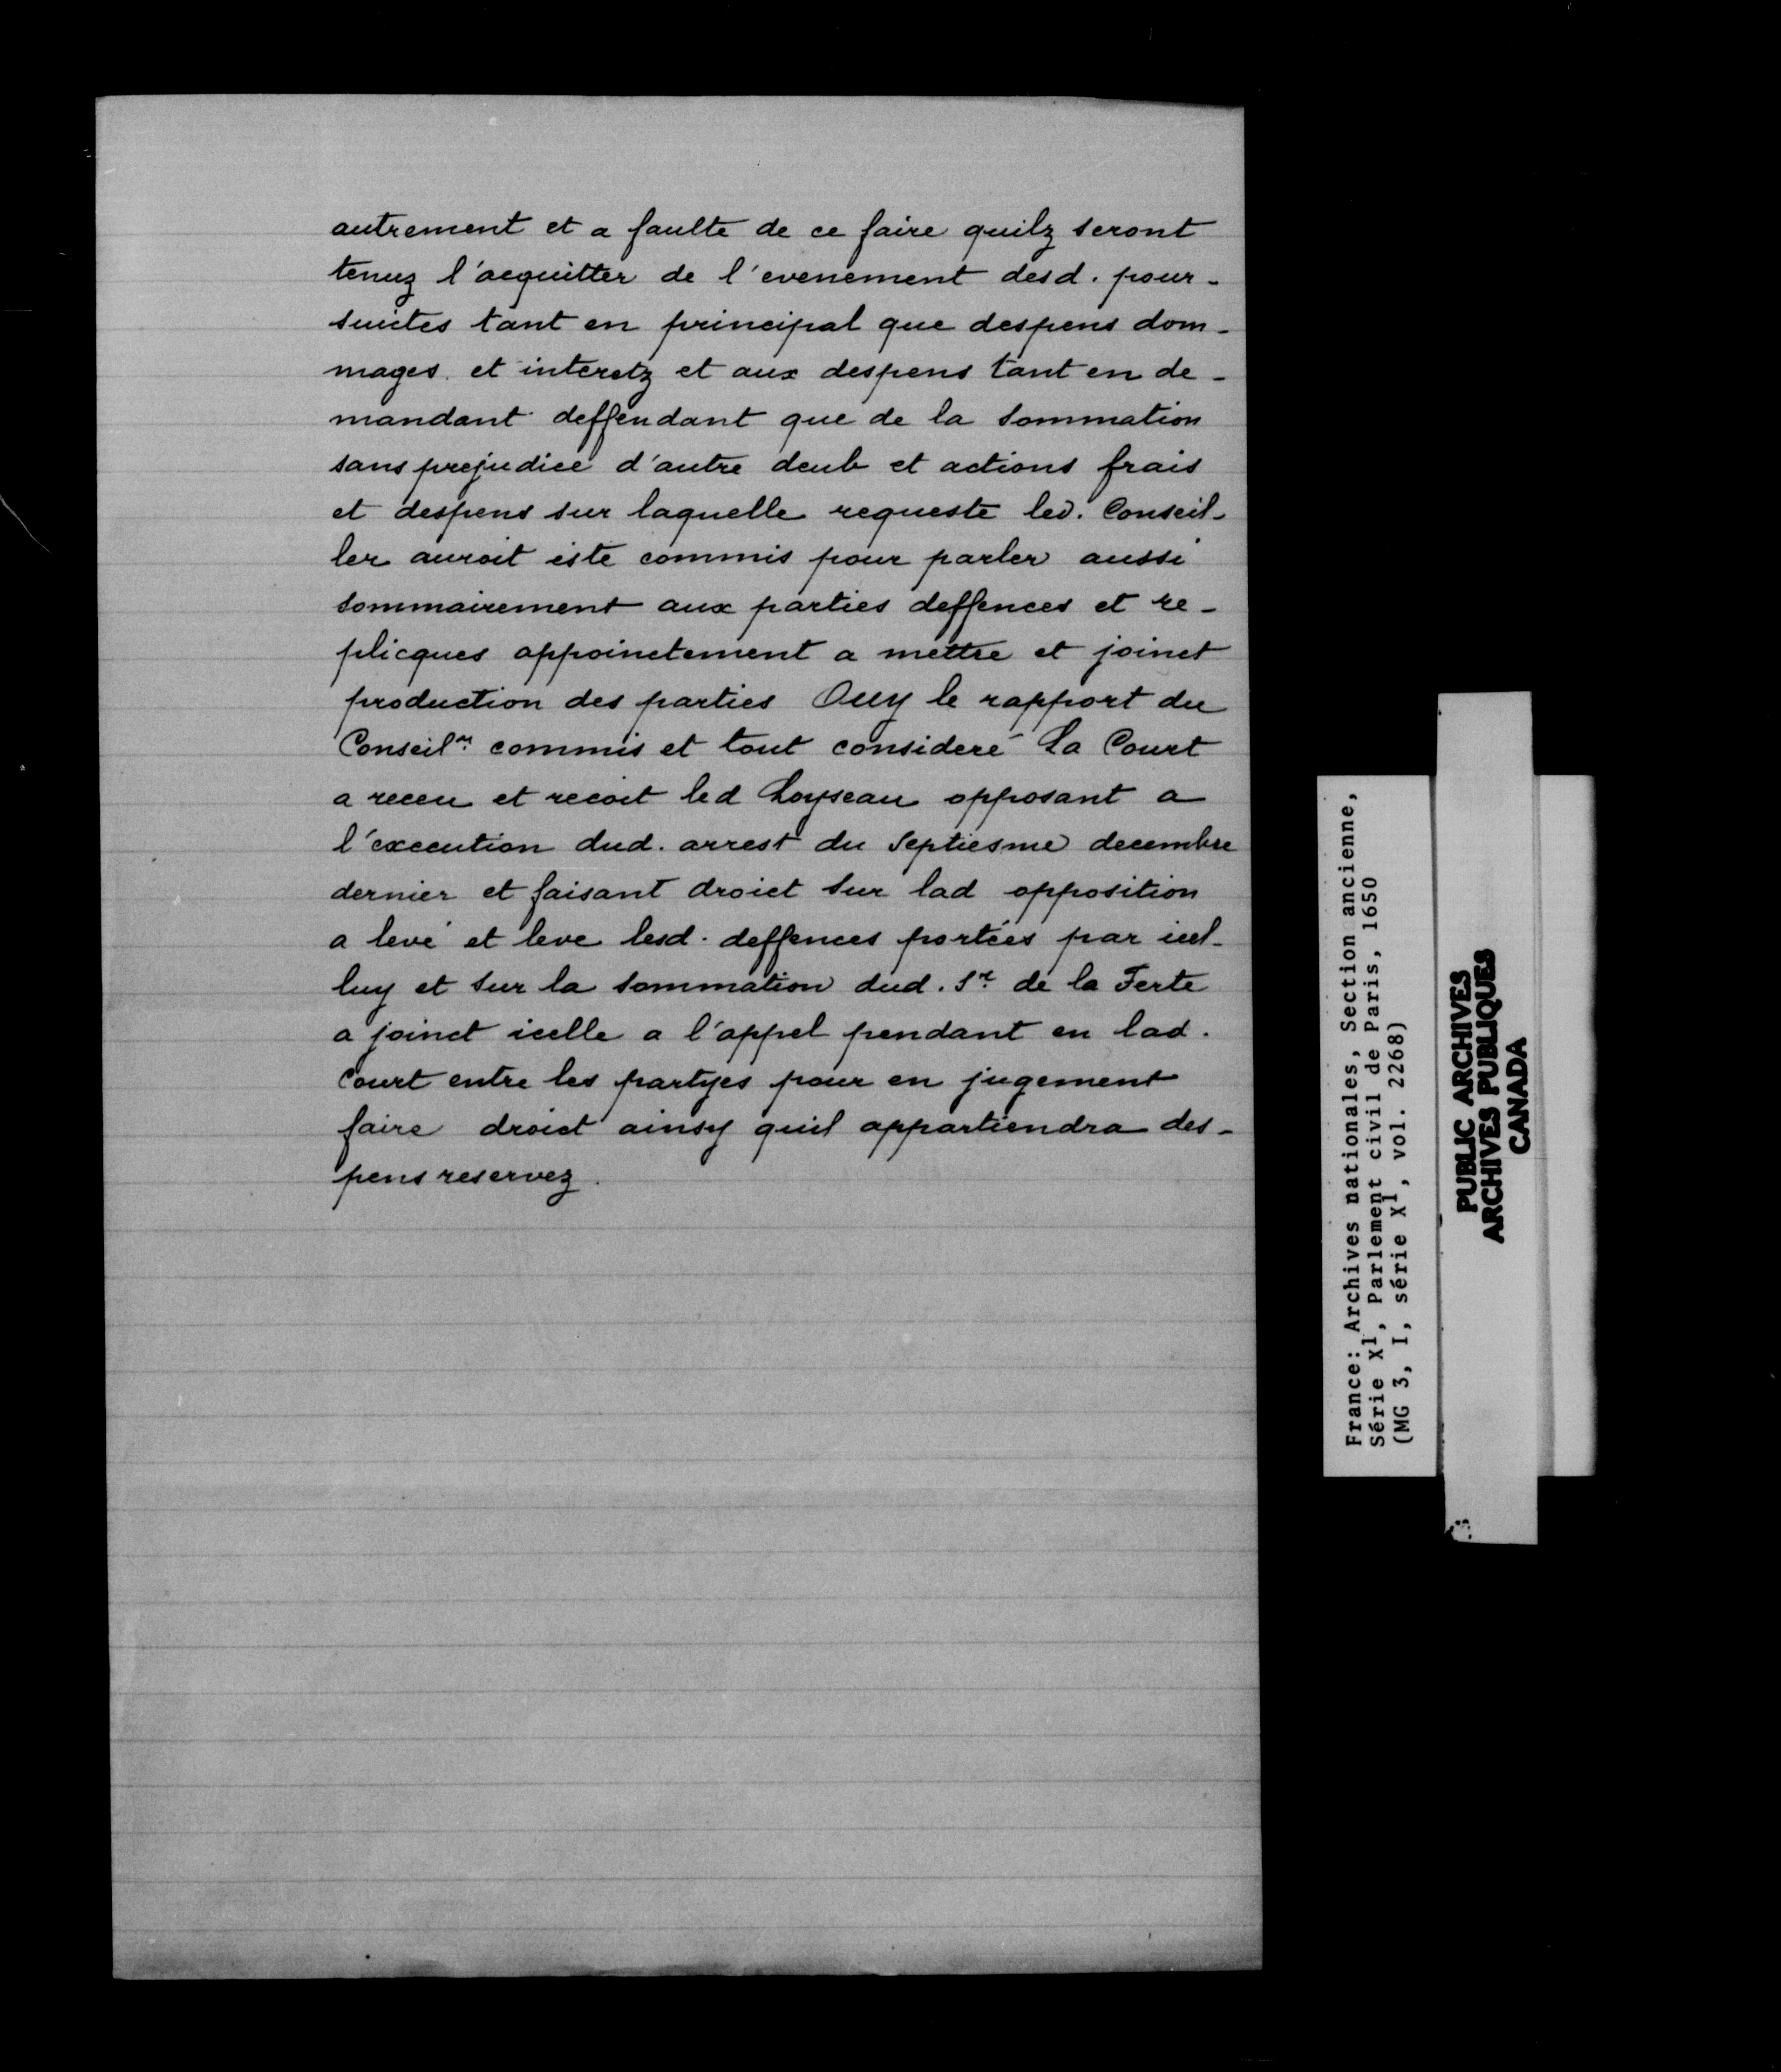 autrement et a faulte de ce faire quilz seront
tenuz l'acquitter de l'evenement desd. pour-
suictes tant en principal que despens dom-
mages et interetz et aux despens tant en de-
mandant deffendant que de la sommation
sans prejudice d'autre deub et actions frais
et despens sur laquelle requeste led. Conseil-
ler auroit este commis pour parler aussi
sommairement aux parties deffences et re-
plicques appoinctement a mettre et joinct
production des parties Ouy le rapport du
Conseilr. commis et tout consideré La Court
a receu et recoit led Loyseau opposant a
l'execution dud. arrest du Septiesme decembre
dernier et faisant droict sur lad opposition
a levé et leve lesd. deffences portées par icel-
luy et sur la sommation dud. Sr. de la Ferte
a joinct icelle a l'appel pendant en lad.
Court entre les partyes pour en jugement
faire droict ainsy quil appartiendra des-
pens reservez.
France: Archives nationales, Section ancienne,
Série X1, Parlement civil de Paris, 1650
(MG 3, I, série X1, vol. 2268)
PUBLIC ARCHIVES
ARCHIVES PUBLIQUES
CANADA